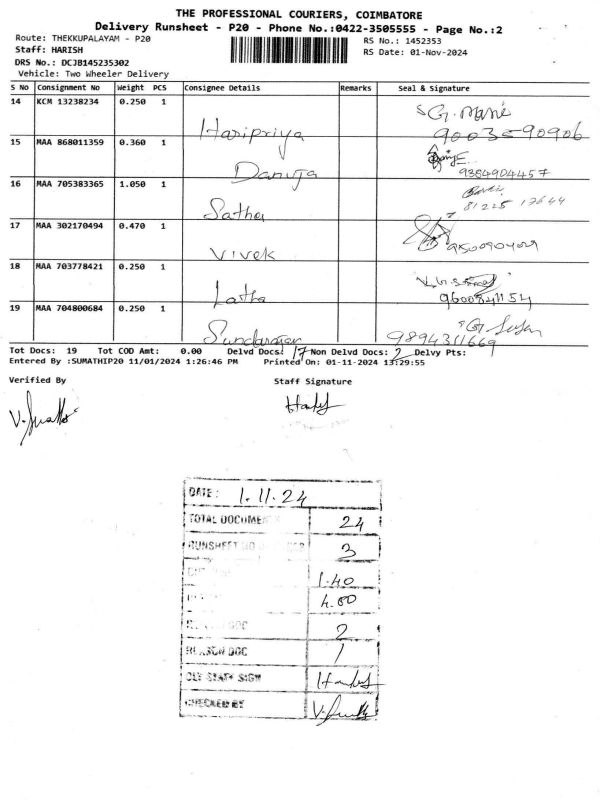 THE PROFESSIONAL COURIERS, COIMBATORE
Delivery Runsheet - P20 - Phone No.:0422-3505555 - Page No.:2
Route: THEKKUPALAYAM - P20
RS No.: 1452353
Staff: HARISH
RS Date: 01-Nov-2024
DRS No.: DCJB145235302
Vehicle: Two Wheeler Delivery
S No Consignment No Weight PCS Consignee Details Remarks Seal & Signature
14 KCM 13238234 0.250 1 Haripriya G. Mani 9003590906
15 MAA 868011359 0.360 1 Danuja 9384904457
16 MAA 705383365 1.050 1 Satha 81225 17644
17 MAA 302170494 0.470 1 Vivek
18 MAA 703778421 0.250 1 Latha 9600841154
19 MAA 704800684 0.250 1 Sundarajar 9894311669
Tot Docs: 19 Tot COD Amt: 0.00 Delvd Docs: 17 Non Delvd Docs: 2 Delvy Pts:
Entered By :SUMATHIP20 11/01/2024 1:26:46 PM Printed On: 01-11-2024 13:29:55
Verified By Staff Signature
DATE: 1.11.24
TOTAL DOCUMENT 24
RUNSHEET NO 3
1.40
4.00
DOC 2
REASON DOC 1
DLY STAFF SIGN
CHECKED BY